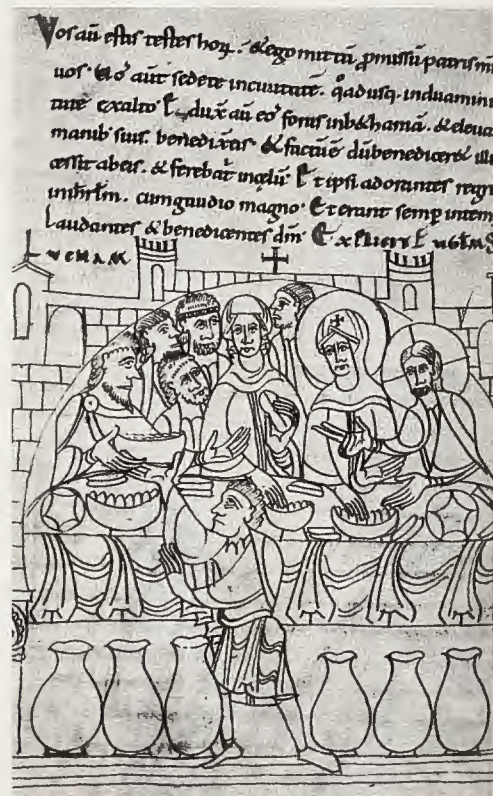 Vos aũ estis testes hoꝝ. & ego mittã ꝓmissũ patris mi
uos. Vos aut sedete inciuitate. q̊adusq. induamini
tute exalto. Eduxit au eos foras inbethaniã. & eleua
manib suis. benedixit eis. & factũ ẽ dũ benediceret illi
cessit abeis. & ferebat̃ incelũ. Et ipsi adorantes regr
inihrlm. cumgaudio magno. Et erant semp intem
Laudantes & benedicentes dm̃. EXPLICIT EVGLM S
LVCHAM